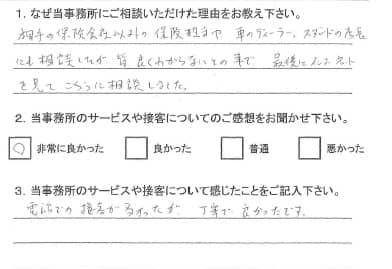 1. なぜ当事務所にご相談いただけた理由をお教え下さい。
相手の保険会社以外の保険担当や 車のディーラー、スタンドの店長
にも相談したが 皆良くわからないとの事で 最後にインターネット
を見て こちらに相談しました。
2. 当事務所のサービスや接客についてのご感想をお聞かせ下さい。
○ 非常に良かった 良かった 普通 悪かった
3. 当事務所のサービスや接客について感じたことをご記入下さい。
電話での 接客が 多かったが 丁寧で 良かったです。